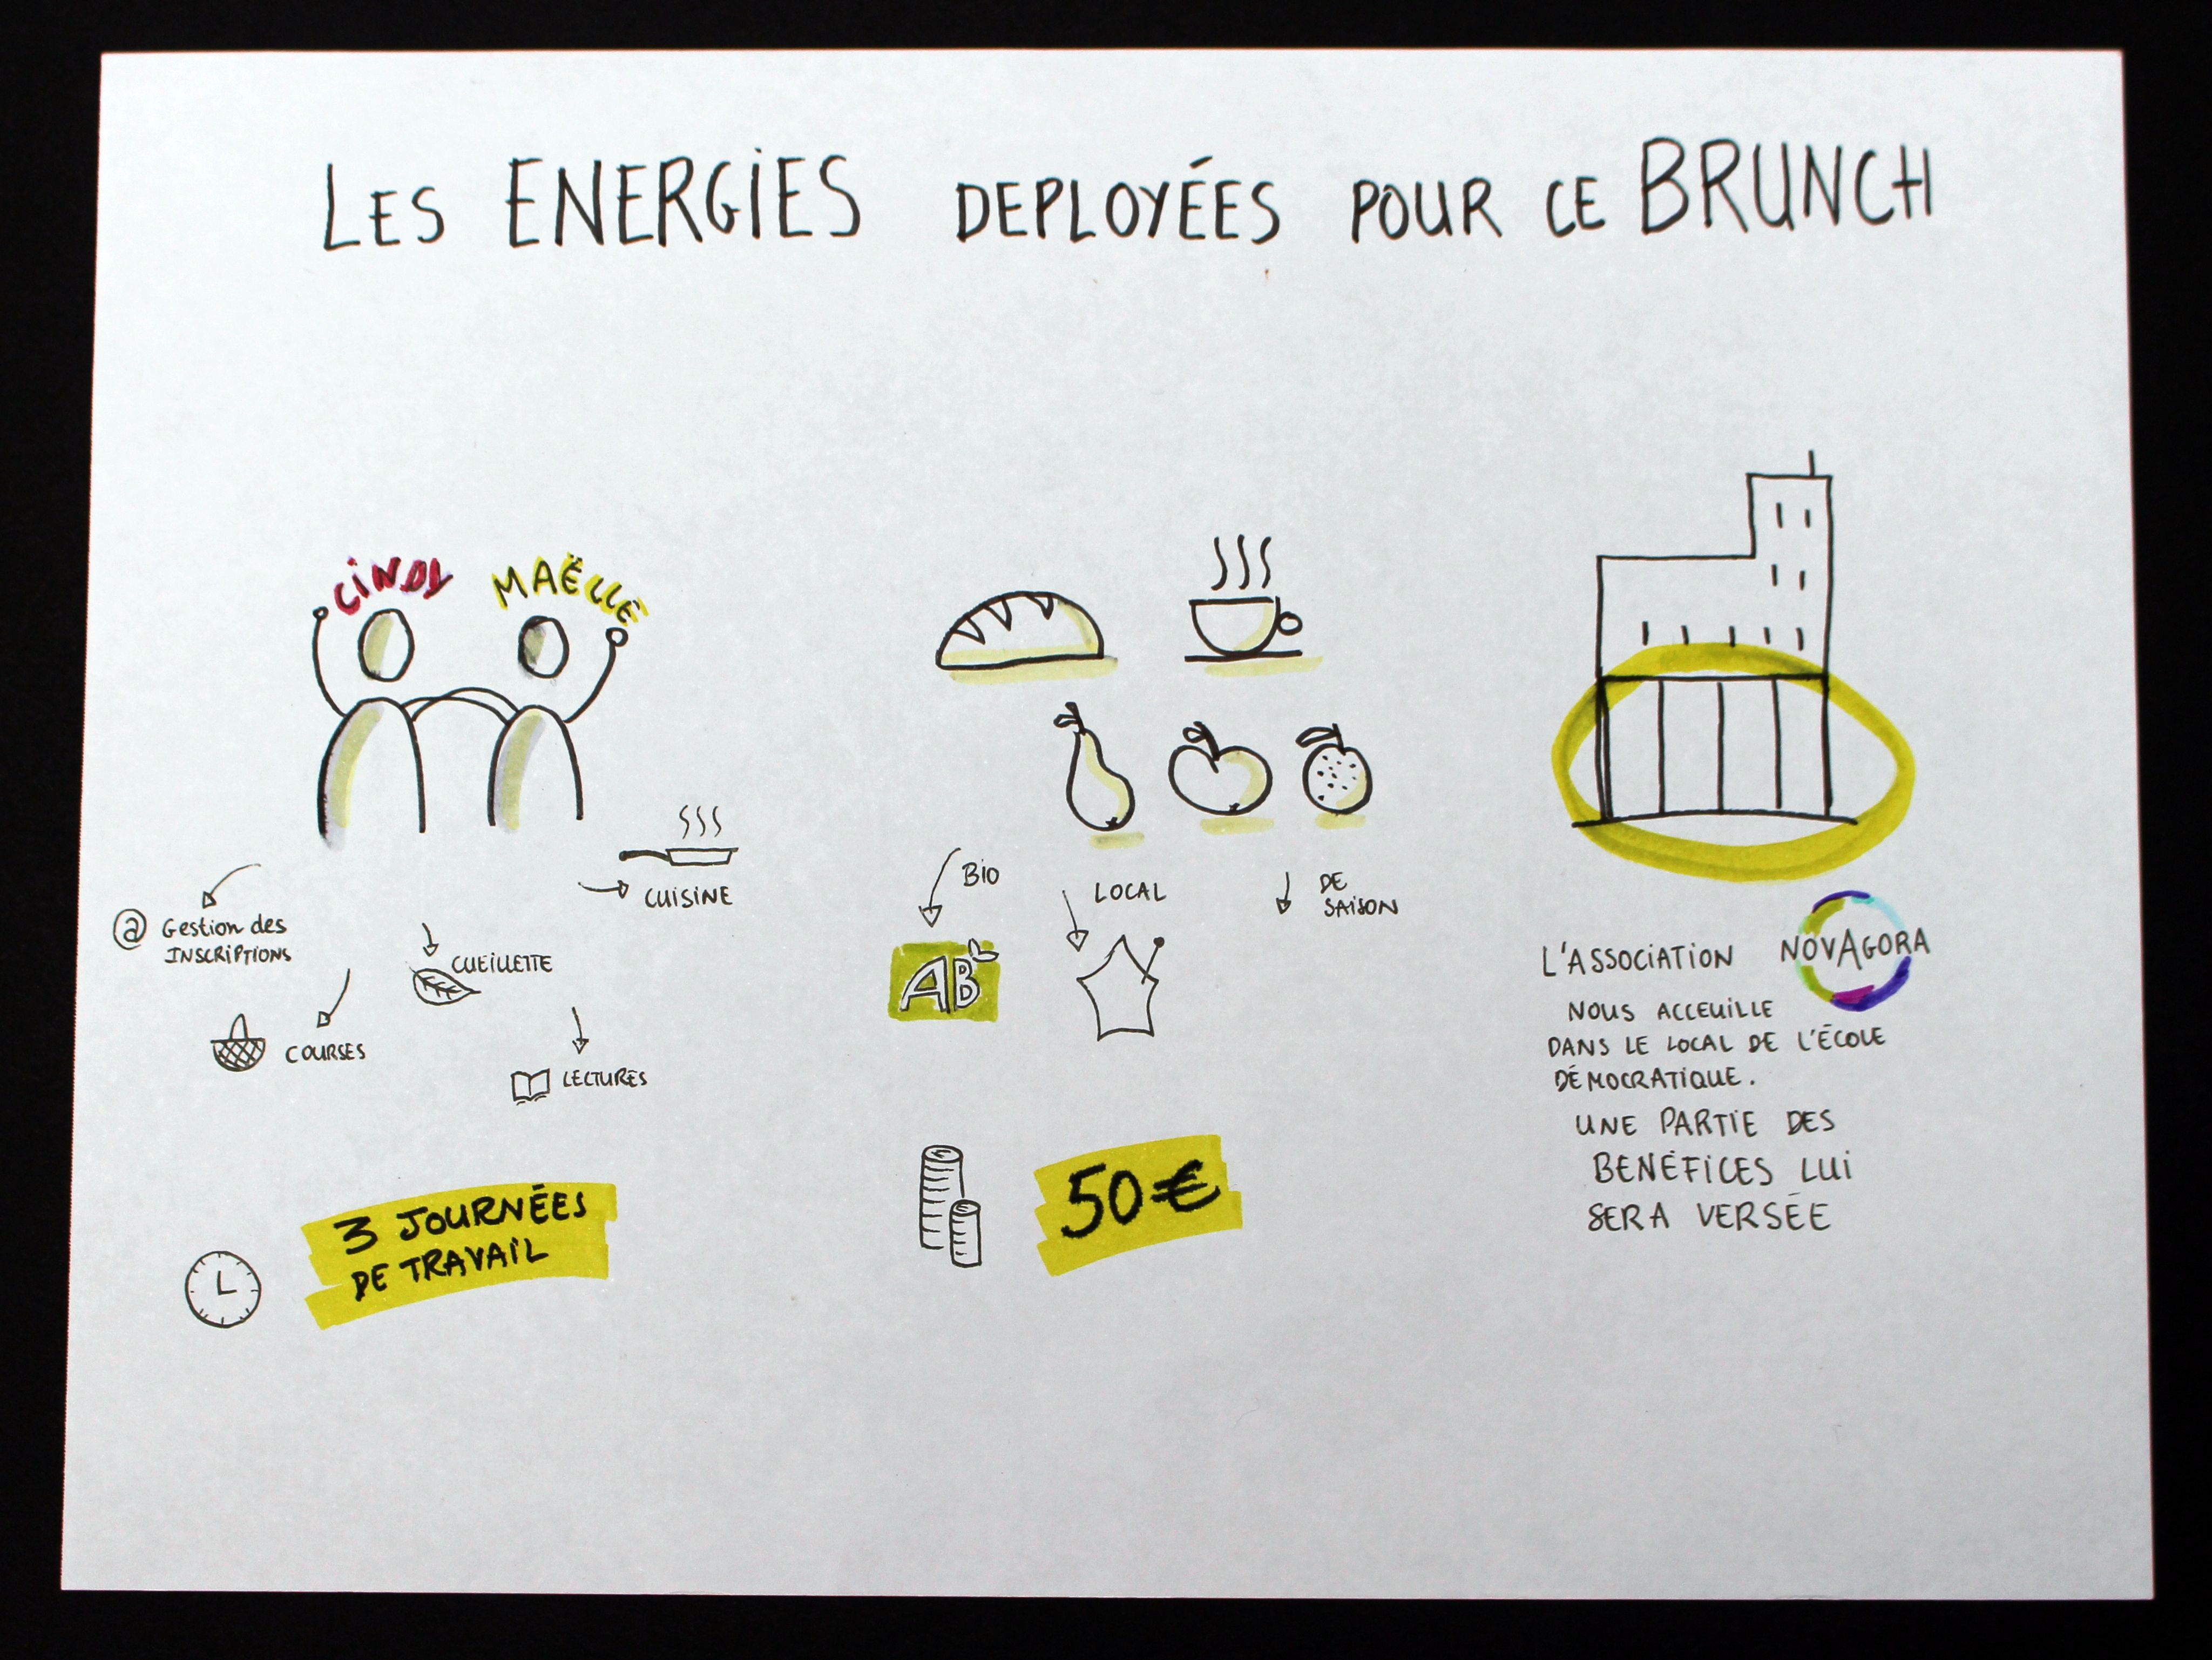 LES ENERGIES DEPLOYÉES POUR CE BRUNCH
CINDY
MAËLLE
CUISINE
@ Gestion des
INSCRIPTIONS
CUEILLETTE
COURSES
LECTURES
3 JOURNÉES
DE TRAVAIL
BIO
LOCAL
DE
SAISON
AB
50€
L'ASSOCIATION NOVAGORA
NOUS ACCEUILLE
DANS LE LOCAL DE L'ÉCOLE
DÉMOCRATIQUE.
UNE PARTIE DES
BENÉFICES LUI
SERA VERSÉE